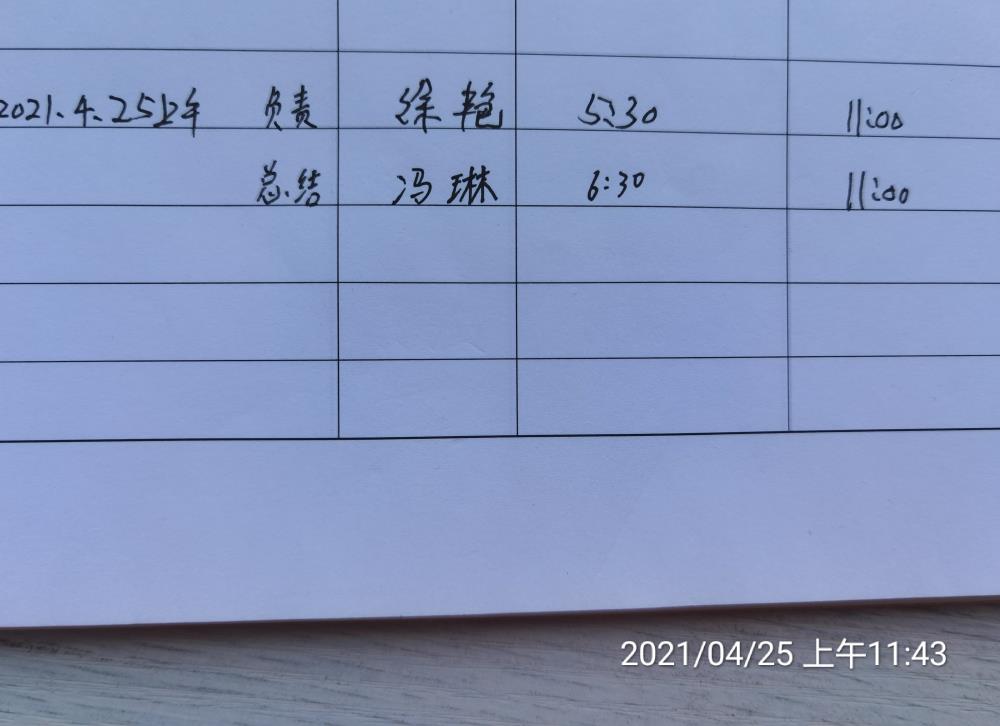 2021.4.25上午 负责 徐艳 5:30 11:00
总结 冯琳 6:30 11:00
2021/04/25 上午11:43